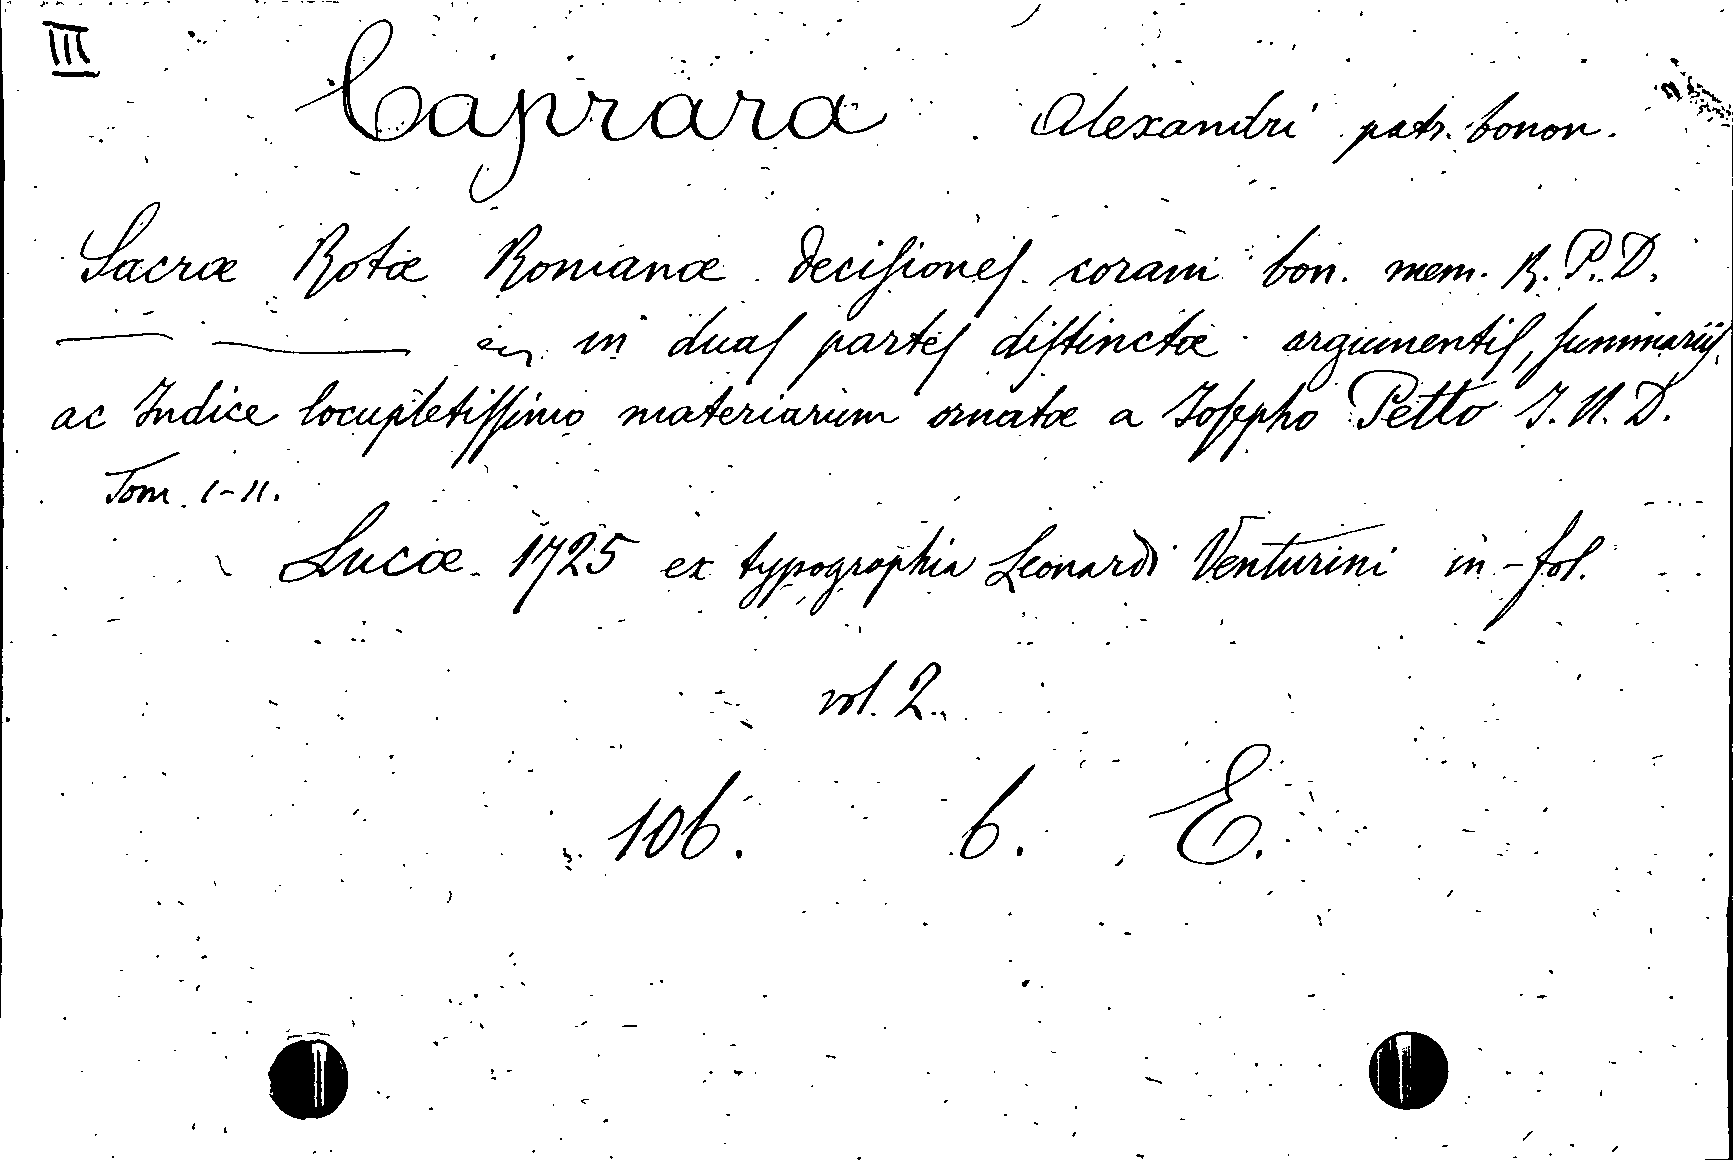 III
Caprara Alexandri patr. bonon.
Sacræ Rotæ Romanæ deciſioneſ coram bon. mem. R. P. D.
— — in duaſ parteſ diſtinctæ argumentiſ, ſummariiſ,
ac Indice locupletiſſimo materiarum ornatæ a Joſepho Petto J. U. D.
Tom. I-II.
Lucæ 1725 ex typographia Leonardi Venturini in-fol.
vol. 2.
106. 6. E.